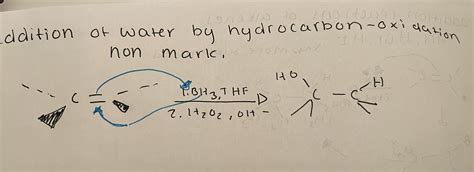 ddition of water by hydrocarbon-oxidation
non mark.
C
1. BH3, THF
2. H2O2, OH-
HO
C - C
H